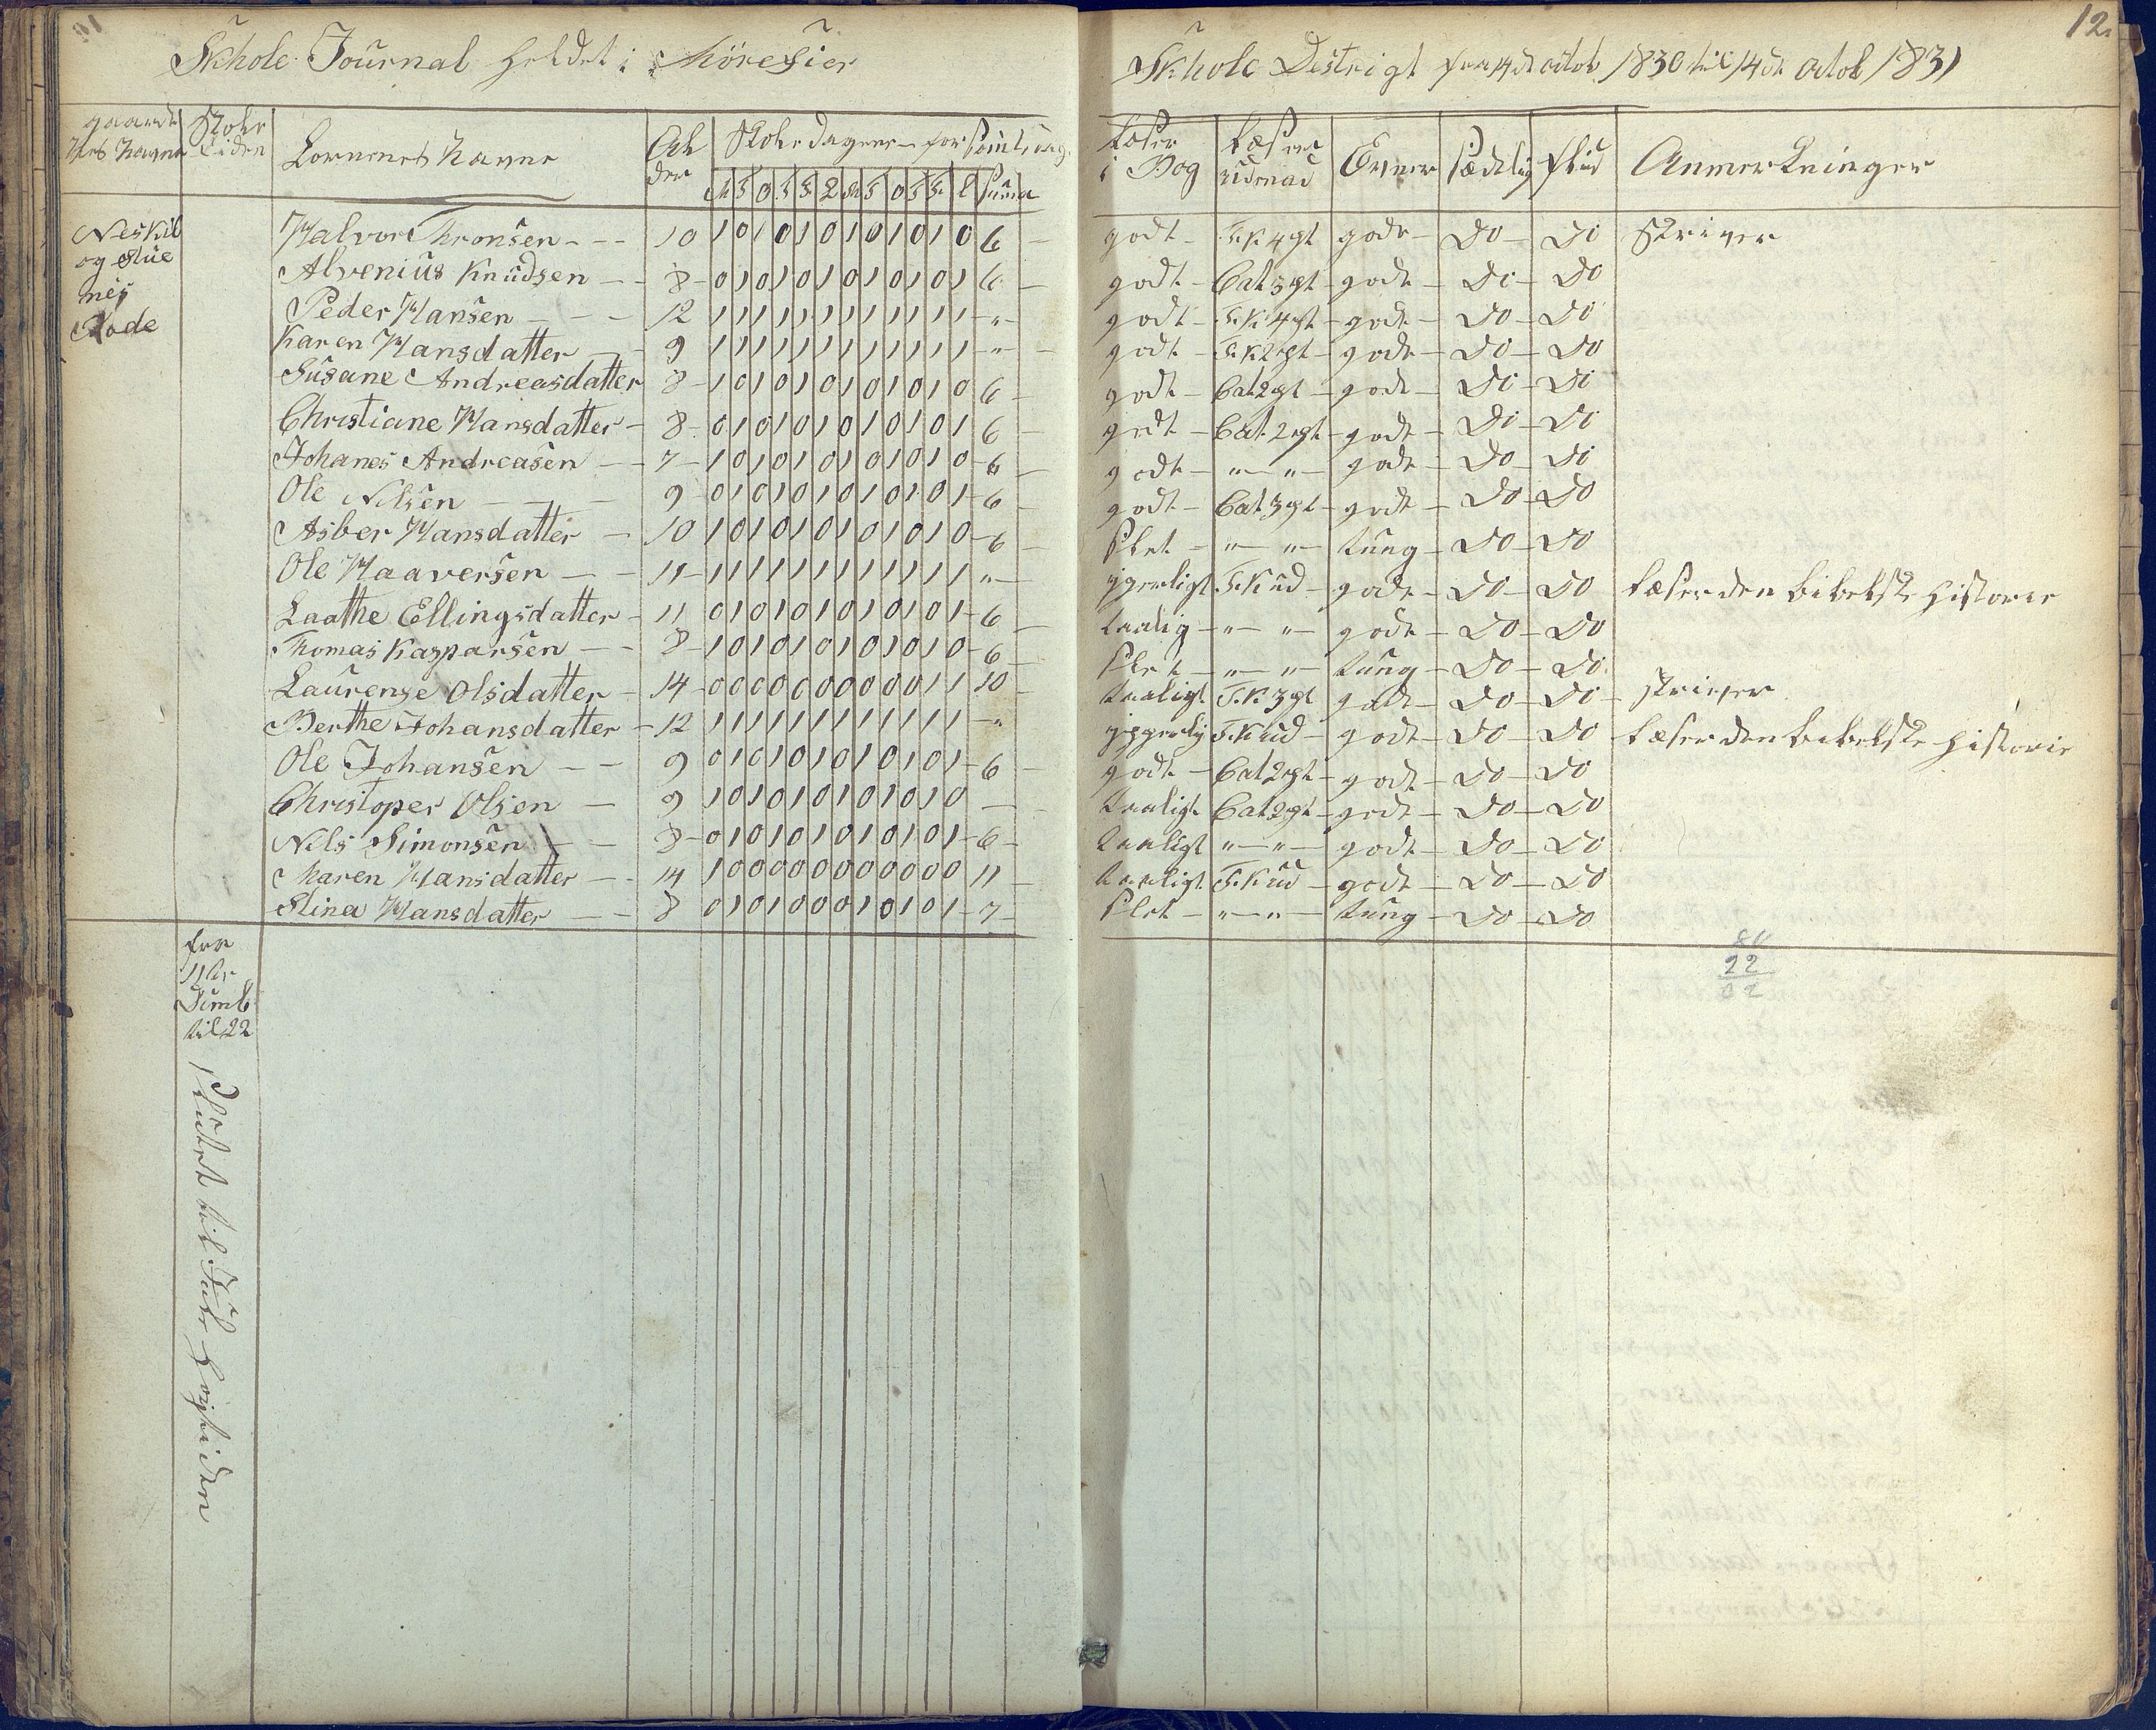 Skhole Journal holdet i Møresier Skhole Destrigt fra 14de octob 1830 til 14de Octob 1831
12.
gaardenes Navne | Skole Tiden | Børnenes Navne | Al der | Skole dagene forsømte dage | Læser i Bog | Læser udenad | Evner | Sædelig | flid | Anmerkninger
M T O T F L M T O T F L Suma
Neskil
og Stue
næs
Rode
Halvor Thronsen - - - 10 1 0 1 0 1 0 1 0 1 0 1 0 6 - godt - F.K 4 pt gode - Do - Do Skriver
Alvenius Knudsen - - 8 - 0 1 0 1 0 1 0 1 0 1 0 1 6 - godt - Cat 3 pt - gode - Do - Do
Peder Hansen - - - 12 1 1 1 1 1 1 1 1 1 1 1 1 - " - godt - F.K 4 pt - gode - Do - Do
Karen Hansdatter - 9 1 1 1 1 1 1 1 1 1 1 1 1 - " - godt - F.K 2 pt - gode - Do - Do
Susane Andreasdatter 8 - 1 0 1 0 1 0 1 0 1 0 1 0 6 - godt - Cat 2 pt - gode - Do - Do
Christiane Hansdatter - 8 - 0 1 0 1 0 1 0 1 0 1 0 1 6 - godt - Cat. 2 pt - gode - Do - Do
Johanes Andreasen - - 7 - 1 0 1 0 1 0 1 0 1 0 1 0 - 6 - godt - " - " - gode - Do - Do
Ole Nilsen - - - 9 - 0 1 0 1 0 1 0 1 0 1 0 1 - 6 - godt - Cat 3 pt - gode - Do - Do
Asber Hansdatter - 10 1 0 1 0 1 0 1 0 1 0 1 0 - 6 - Slet - " - " - tung - Do - Do
Ole Haaversen - - 11 - 1 1 1 1 1 1 1 1 1 1 1 1 " - F.K ud - gode - Do - Do Læser den bibelske historie
Laathe Ellingsdatter - 11 0 1 0 1 0 1 0 1 0 1 0 1 - 6 - taalig - " - " - gode - Do - Do
Thomas Kasparsen - - 8 - 1 0 1 0 1 0 1 0 1 0 1 0 - 6 - Slet - " - " - tung - Do - Do
Laurense Olsdatter - 14 - 0 0 0 0 0 0 0 0 0 0 1 1 10 - taaligt F.K 3 pt gode - Do - Do - skriver
Berthe Johansdatter - 12 1 1 1 1 1 1 1 1 1 1 1 1 - " F.K ud - gode - Do - Do Læser den bibelske historie
Ole Johansen - - 9 0 1 0 1 0 1 0 1 0 1 0 1 - 6 - godt - Cat 2 pt - gode - Do - Do
Christoper Olsen - 9 1 0 1 0 1 0 1 0 1 0 1 0 - taaligt Cat 2 pt - gode - Do - Do
Nils Simonsen - - 8 - 0 1 0 1 0 1 0 1 0 1 0 1 - 6 - taaligt " - " - gode - Do - Do
Maren Hansdatter - - 14 1 0 0 0 0 0 0 0 0 0 0 0 11 - taaligt F.K ud - gode - Do - Do
Stina Hansdatter - - 8 0 1 0 1 0 0 0 1 0 1 0 1 - 7 - Slet - " - " - tung - Do - Do
fra
11te
Dcmb
til 22
Sluttet til Jule høytiden
22
02